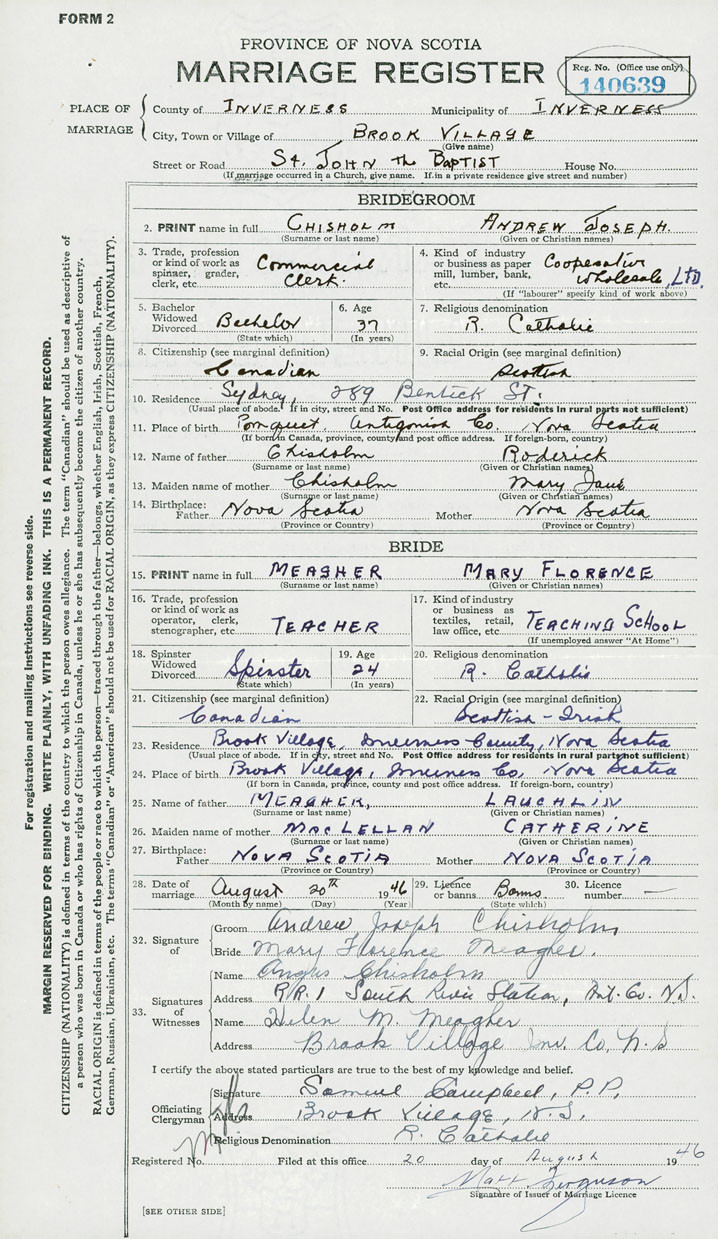 FORM 2
PROVINCE OF NOVA SCOTIA
MARRIAGE REGISTER
Reg. No. (Office use only)
140639
PLACE OF MARRIAGE
County of INVERNESS Municipality of INVERNESS
City, Town or Village of BROOK VILLAGE
(Give name)
Street or Road St. JOHN the BAPTIST House No.
(If marriage occurred in a Church, give name. If in a private residence give street and number)
BRIDEGROOM
2. PRINT name in full CHISHOLM ANDREW JOSEPH.
(Surname or last name) (Given or Christian names)
3. Trade, profession or kind of work as spinner, grader, clerk, etc. Commercial Clerk.
4. Kind of industry or business as paper mill, lumber, bank, etc. Cooperative Wholesale, LTD.
(If "labourer" specify kind of work above)
5. Bachelor Widowed Divorced Bachelor
(State which)
6. Age 37
(In years)
7. Religious denomination
R. Catholic
8. Citizenship (see marginal definition)
Canadian
9. Racial Origin (see marginal definition)
Scottish
10. Residence Sydney, 289 Bentick St.
(Usual place of abode. If in city, street and No. Post Office address for residents in rural parts not sufficient)
11. Place of birth Pomquet, Antigonish Co. Nova Scotia
(If born in Canada, province, county and post office address. If foreign-born, country)
12. Name of father Chisholm Roderick
(Surname or last name) (Given or Christian names)
13. Maiden name of mother Chisholm Mary Jane
(Surname or last name) (Given or Christian names)
14. Birthplace: Father Nova Scotia Mother Nova Scotia
(Province or Country) (Province or Country)
BRIDE
15. PRINT name in full MEAGHER MARY FLORENCE
(Surname or last name) (Given or Christian names)
16. Trade, profession or kind of work as operator, clerk, stenographer, etc TEACHER
17. Kind of industry or business as textiles, retail, law office, etc. TEACHING SCHOOL
(If unemployed answer "At Home")
18. Spinster Widowed Divorced Spinster
(State which)
19. Age 24
(In years)
20. Religious denomination
R. Catholic
21. Citizenship (see marginal definition)
Canadian
22. Racial Origin (see marginal definition)
Scottish - Irish
23. Residence Brook Village, Inverness County, Nova Scotia
(Usual place of abode. If in city, street and No. Post Office address for residents in rural parts not sufficient)
24. Place of birth Brook Village, Inverness Co, Nova Scotia
(If born in Canada, province, county and post office address. If foreign-born, country)
25. Name of father MEAGHER, LAUCHLIN
(Surname or last name) (Given or Christian names)
26. Maiden name of mother MACLELLAN CATHERINE
(Surname or last name) (Given or Christian names)
27. Birthplace: Father NOVA SCOTIA Mother NOVA SCOTIA
(Province or Country) (Province or Country)
28. Date of marriage August 20th 1946
(Month by name) (Day) (Year)
29. Licence or banns Banns.
(State which)
30. Licence number —
32. Signature of
Groom Andrew Joseph Chisholm
Bride Mary Florence Meagher.
33. Signatures of Witnesses
Name Angus Chisholm
Address R.R.1 South River Station, Ant. Co. N.S.
Name Helen M. Meagher
Address Brook Village Inv. Co. N.S
I certify the above stated particulars are true to the best of my knowledge and belief.
Officiating Clergyman
Signature Samuel Campbell, P.P.
Address Brook Village, N.S.
Religious Denomination R. Catholic
Registered No. Filed at this office 20 day of August 1946
Matt Ferguson
Signature of Issuer of Marriage Licence
[SEE OTHER SIDE]
For registration and mailing instructions see reverse side.
MARGIN RESERVED FOR BINDING. WRITE PLAINLY, WITH UNFADING INK. THIS IS A PERMANENT RECORD.
CITIZENSHIP (NATIONALITY) is defined in terms of the country to which the person owes allegiance. The term "Canadian" should be used as descriptive of
a person who was born in Canada or who has rights of Citizenship in Canada, unless he or she has subsequently become the citizen of another country.
RACIAL ORIGIN is defined in terms of the people or race to which the person—traced through the father—belongs, whether English, Irish, Scottish, French,
German, Russian, Ukrainian, etc. The terms "Canadian" or "American" should not be used for RACIAL ORIGIN, as they express CITIZENSHIP (NATIONALITY).